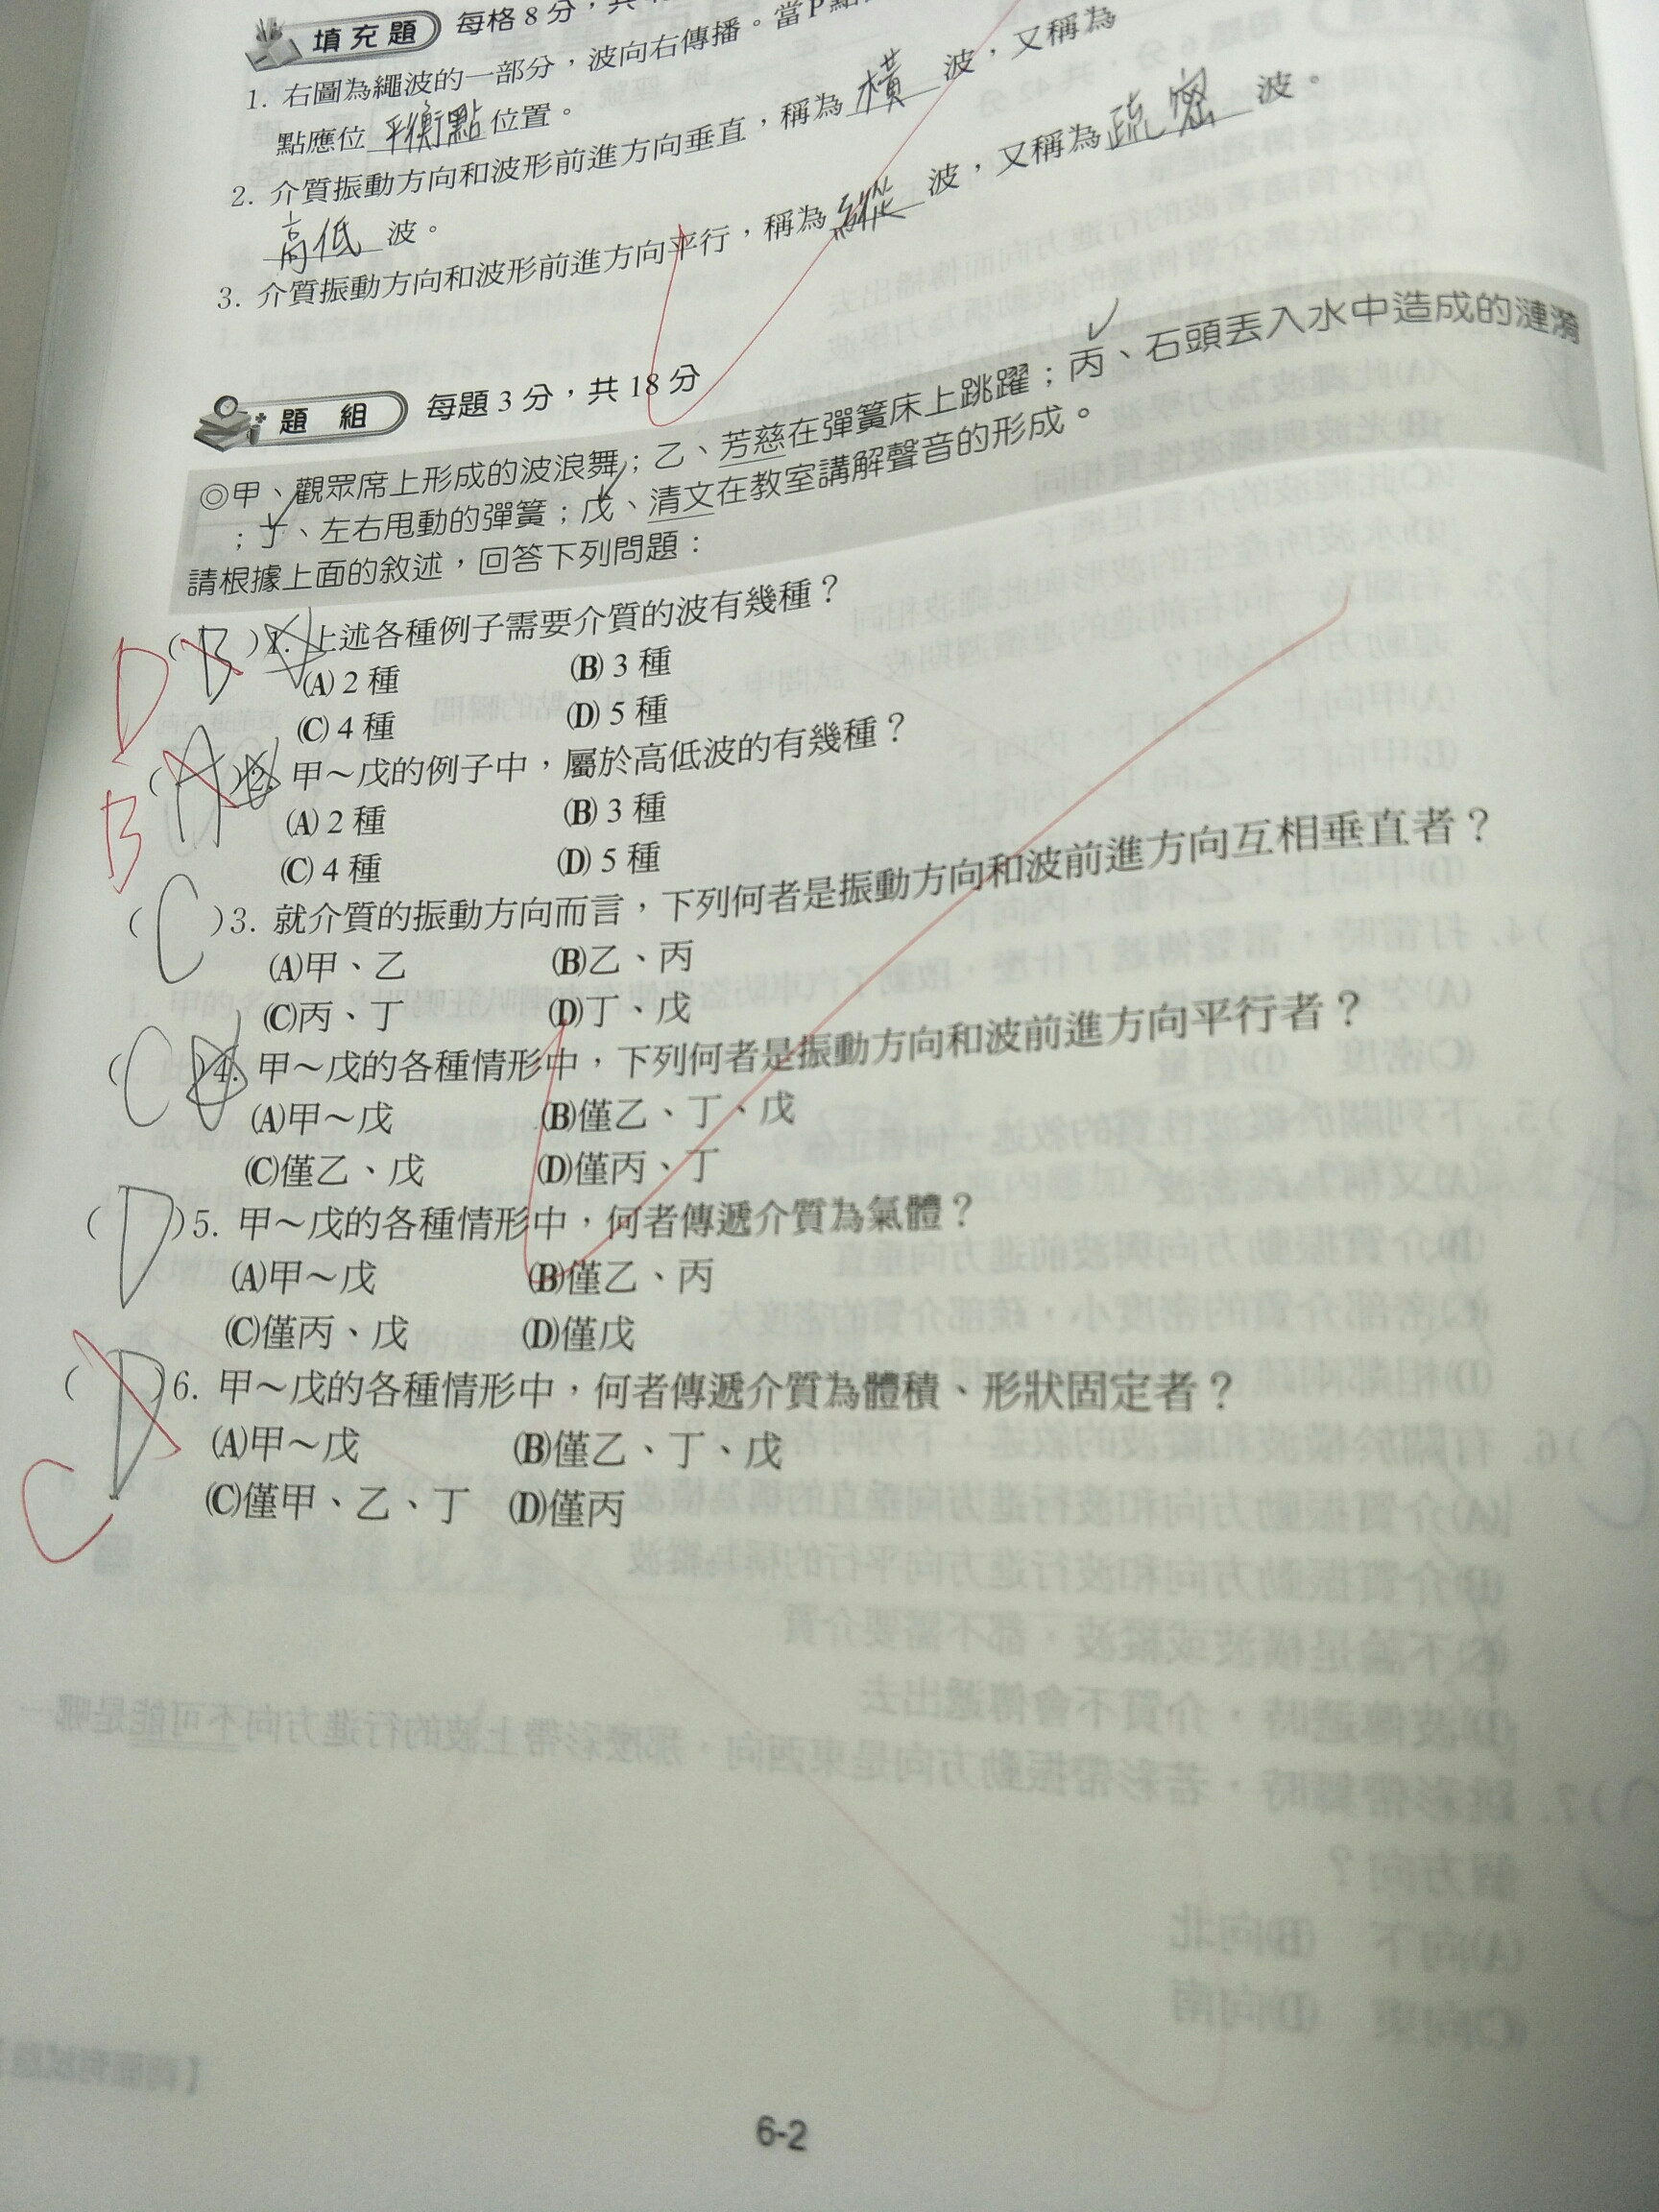 填充題 每格8分，共
1. 右圖為繩波的一部分，波向右傳播。當P點
點應位 平衡點 位置。
2. 介質振動方向和波形前進方向垂直，稱為 橫 波，又稱為
高低 波。
3. 介質振動方向和波形前進方向平行，稱為 縱 波，又稱為 疏密 波。
題組 每題3分，共18分
◎甲、觀眾席上形成的波浪舞；乙、芳慈在彈簧床上跳躍；丙、石頭丟入水中造成的漣漪
；丁、左右甩動的彈簧；戊、清文在教室講解聲音的形成。
請根據上面的敘述，回答下列問題：
D (B)1. 上述各種例子需要介質的波有幾種？
(A) 2 種 (B) 3 種
(C) 4 種 (D) 5 種
B (A)2. 甲～戊的例子中，屬於高低波的有幾種？
(A) 2 種 (B) 3 種
(C) 4 種 (D) 5 種
(C)3. 就介質的振動方向而言，下列何者是振動方向和波前進方向互相垂直者？
(A)甲、乙 (B)乙、丙
(C)丙、丁 (D)丁、戊
(C)4. 甲～戊的各種情形中，下列何者是振動方向和波前進方向平行者？
(A)甲～戊 (B)僅乙、丁、戊
(C)僅乙、戊 (D)僅丙、丁
(D)5. 甲～戊的各種情形中，何者傳遞介質為氣體？
(A)甲～戊 (B)僅乙、丙
(C)僅丙、戊 (D)僅戊
C (D)6. 甲～戊的各種情形中，何者傳遞介質為體積、形狀固定者？
(A)甲～戊 (B)僅乙、丁、戊
(C)僅甲、乙、丁 (D)僅丙
6-2